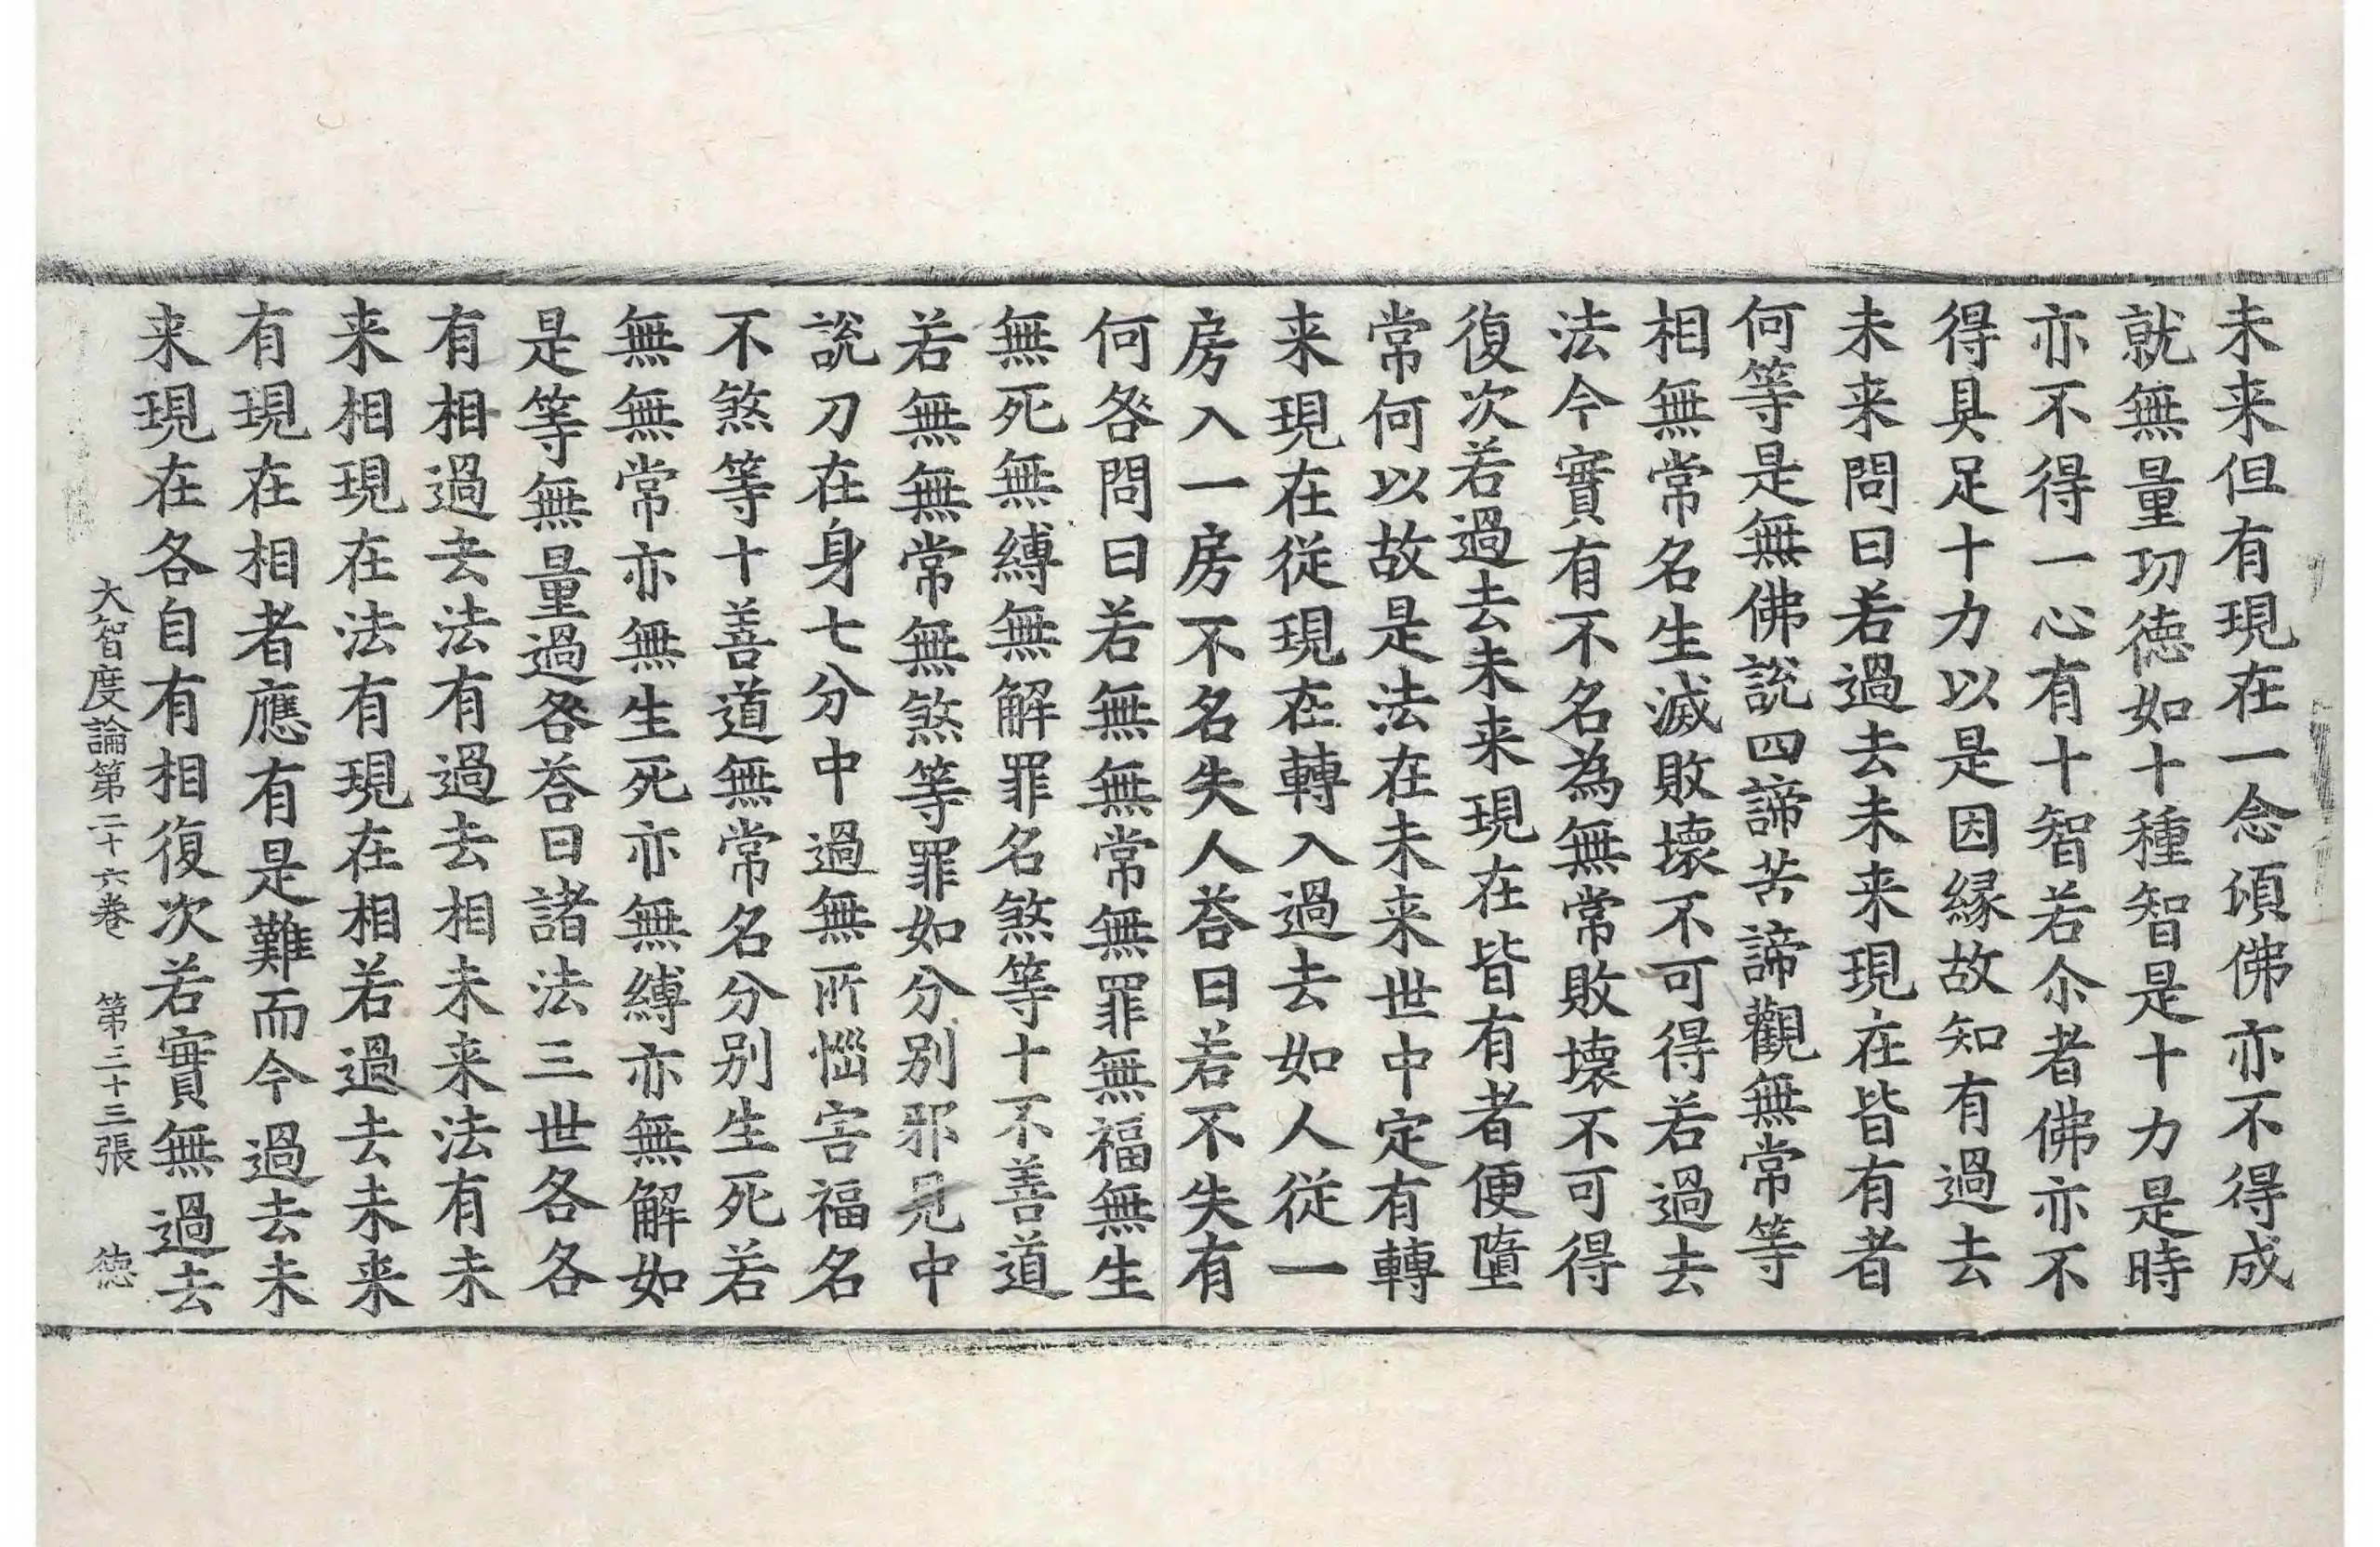 未来但有現在一念頃佛亦不得成
就無量功徳如十種智是十力是時
亦不得一心有十智若尒者佛亦不
得具足十力以是因縁故知有過去
未来問曰若過去未来現在皆有者
何等是無佛說四諦苦諦觀無常等
相無常名生滅敗壞不可得若過去
法今實有不名為無常敗壞不可得
復次若過去未来現在皆有者便墮
常何以故是法在未来世中定有轉
来現在従現在轉入過去如人従一
房入一房不名失人荅曰若不失有
何咎問曰若無無常無罪無福無生
無死無縛無解罪名煞等十不善道
若無無常無煞等罪如分別邪見中
說刀在身七分中過無所惱害福名
不煞等十善道無常名分別生死若
無無常亦無生死亦無縛亦無解如
是等無量過咎荅曰諸法三世各各
有相過去法有過去相未来法有未
来相現在法有現在相若過去未来
有現在相者應有是難而今過去未
来現在各自有相復次若實無過去
大智度論第二十六卷 第三十三張 徳